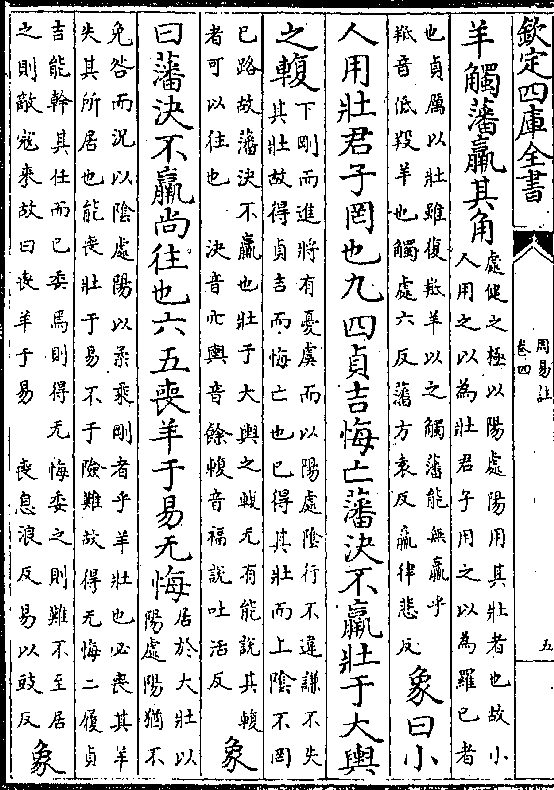 欽定四庫全書
周易註
卷四
五
羊觸藩羸其角
處健之極以陽處陽用其壯者也故小
人用之以為壯君子用之以為羅已者
也貞厲以壯雖復羝羊以之觸藩能無羸乎
羝音低羖羊也觸處六反藩方袁反羸律悲反
象曰小
人用壯君子罔也九四貞吉悔亡藩決不羸壯于大輿
之輹
下剛而進將有憂虞而以陽處陰行不違謙不失
其壯故得貞吉而悔亡也已得其壯而上陰不罔
已路故藩決不羸也壯于大輿之輹无有能說其輹
者可以往也 決音穴輿音餘輹音福說吐活反
象
曰藩決不羸尚往也六五喪羊于易无悔
居於大壯以
陽處陽猶不
免咎而況以陰處陽以柔乘剛者乎羊壯也必喪其羊
失其所居也能喪壯于易不于險難故得无悔二履貞
吉能幹其任而已委焉則得无悔委之則難不至居
之則敵寇來故曰喪羊于易 喪息浪反易以豉反
象